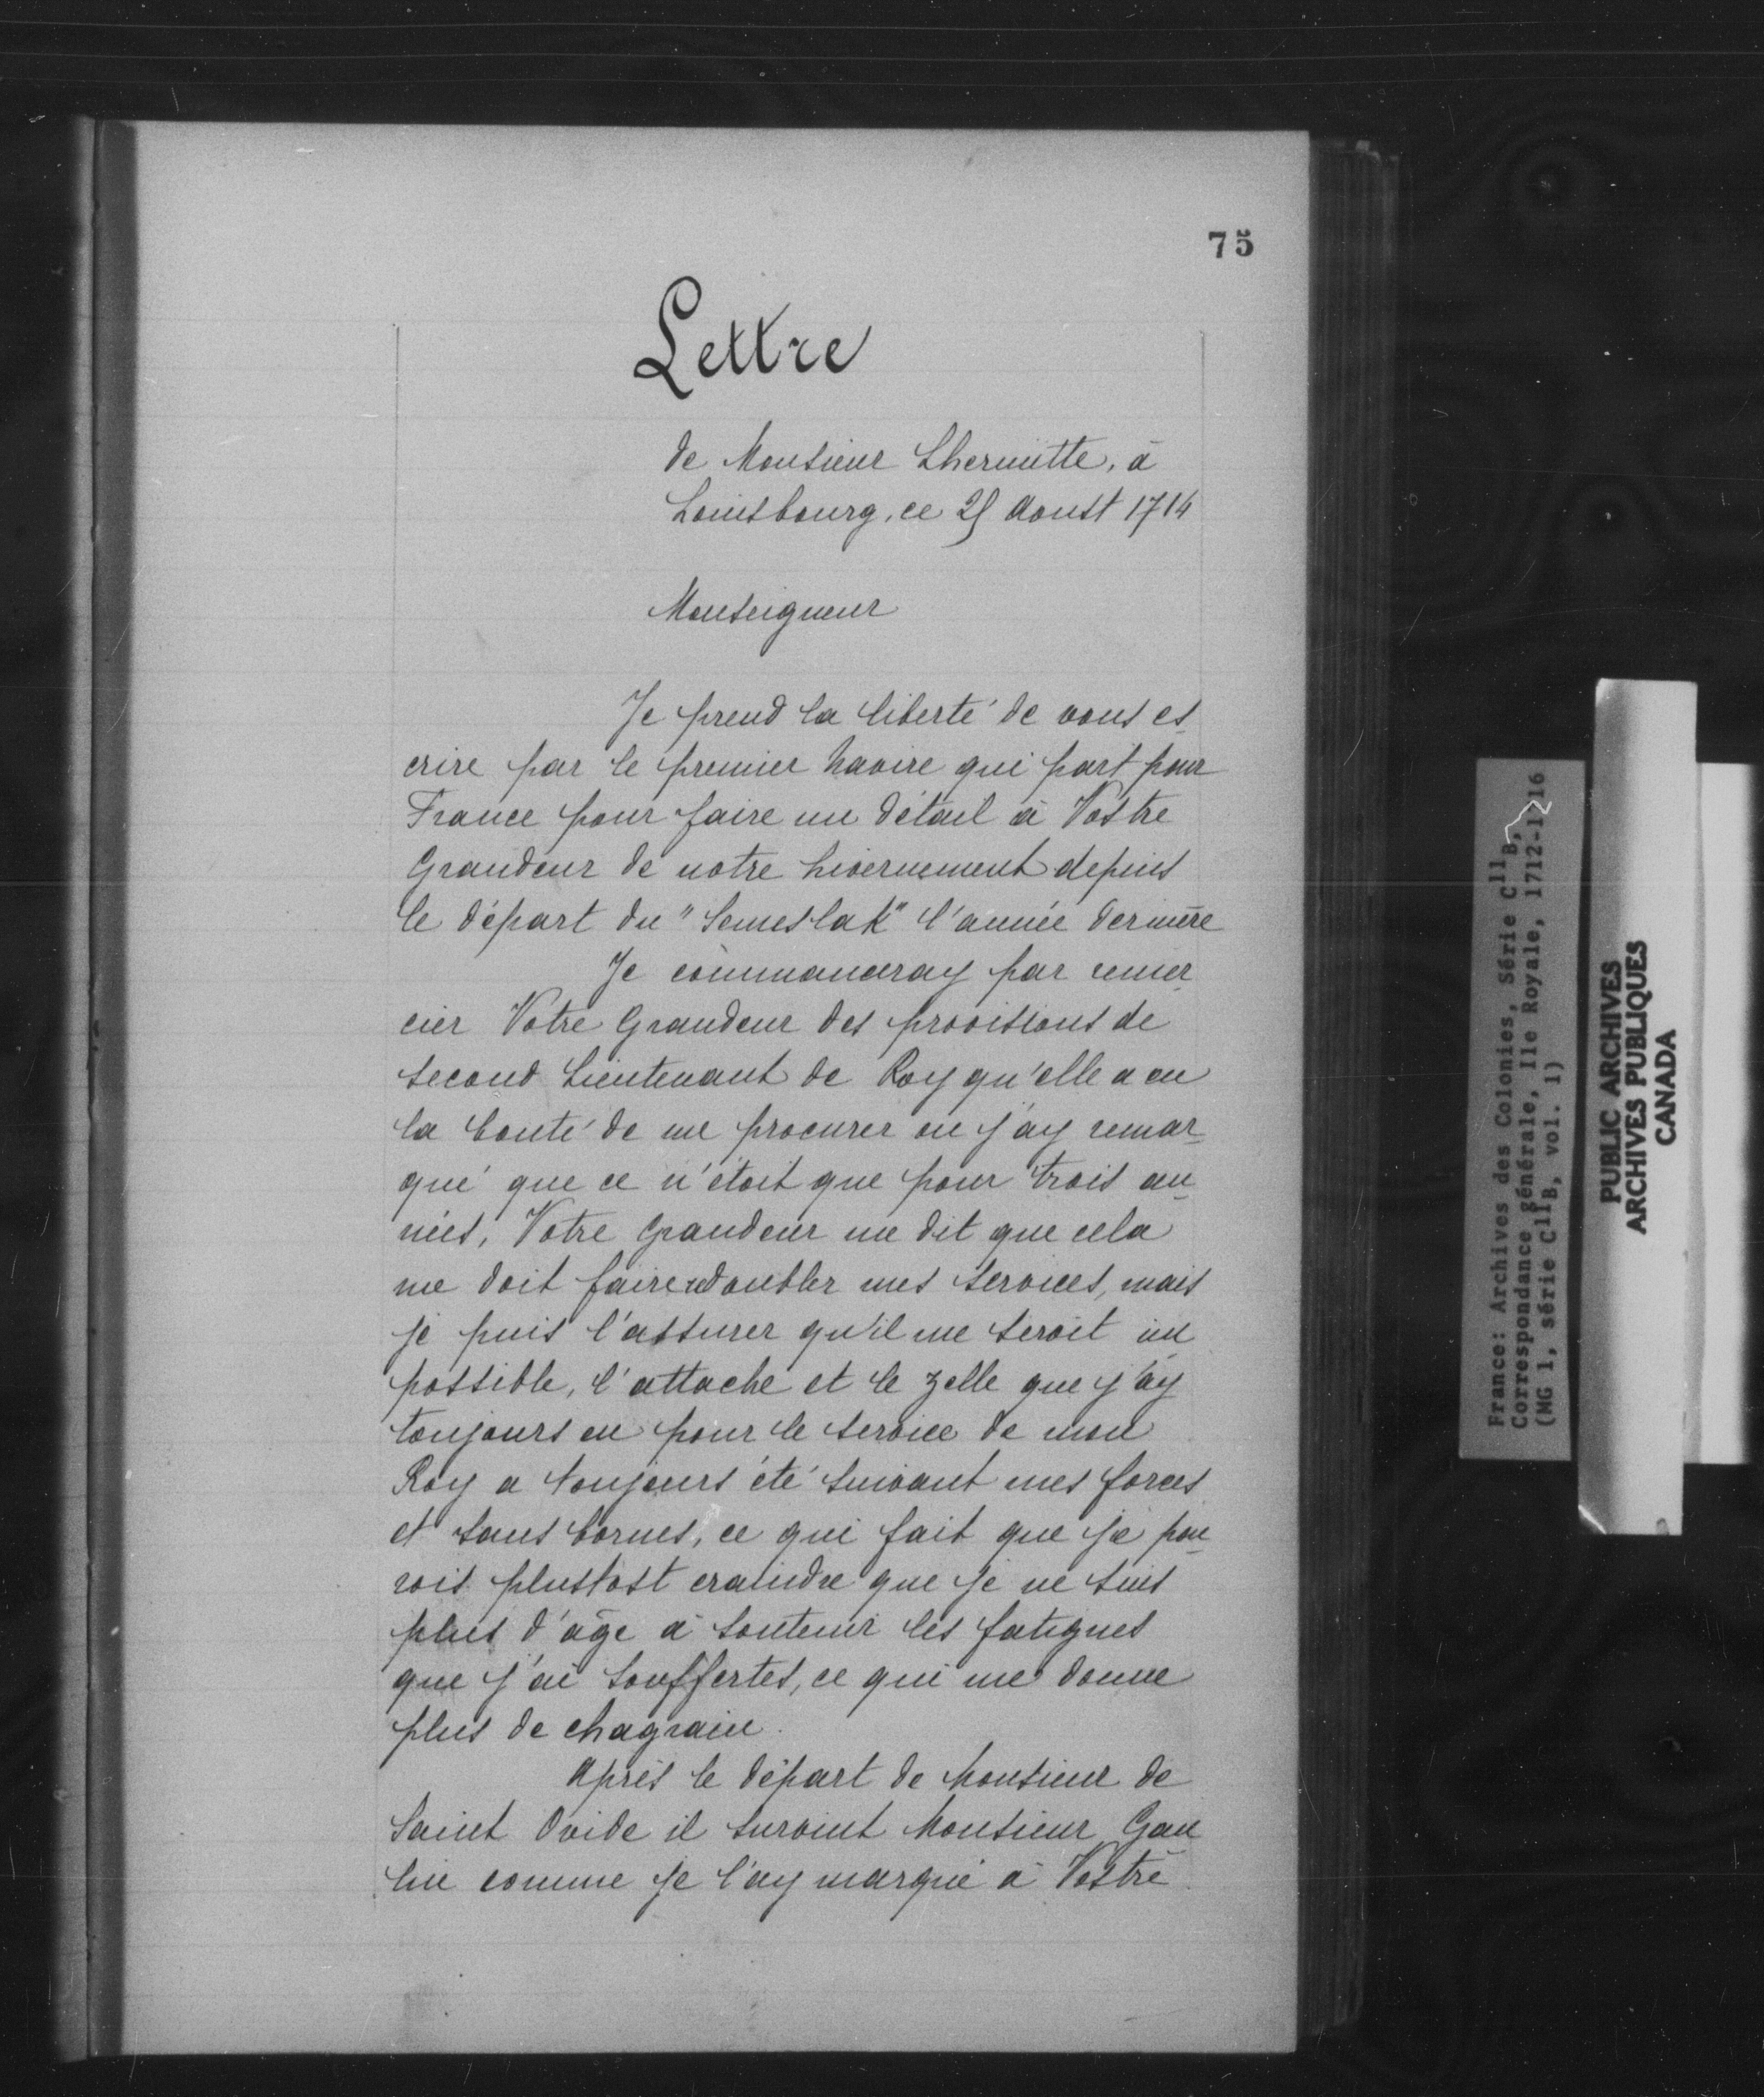 75
Lettre
de Monsieur Lhermitte, à
Louisbourg, ce 25 Aoust 1714
Monseigneur
Je prend la liberté de vous es
crire par le premier navire qui part pour
France pour faire un détail à Vostre
Grandeur de notre hivernement depuis
le départ du "Semeslak" l'année dernière
Je commanceray par remer
cier Votre Grandeur des provisions de
second Lieutenant de Roy qu'elle a eu
la bonté de me procurer ou j'ay remar
qué que ce n'étoit que pour trois an
nées, Votre Grandeur me dit que cela
me doit faire redoubler mes services, mais
je puis l'assurer qu'il me seroit im
possible, l'attache et le zelle que j'ay
toujours eu pour le service de mon
Roy a toujours été suivant mes forces
et sans bornes, ce qui fait que je pou
rois plustost craindre que je ne suis
plus d'âge à soutenir les fatigues
que j'ai souffertes, ce qui me donne
plus de chagrain.
Après le départ de Monsieur de
Saint Ovide il survint Monsieur Gau
lin comme je l'ay marqué à Vostre
France: Archives des Colonies, Série C11B,
Correspondance générale, Ile Royale, 1712-1716
(MG 1, série C11B, vol. 1)
PUBLIC ARCHIVES
ARCHIVES PUBLIQUES
CANADA